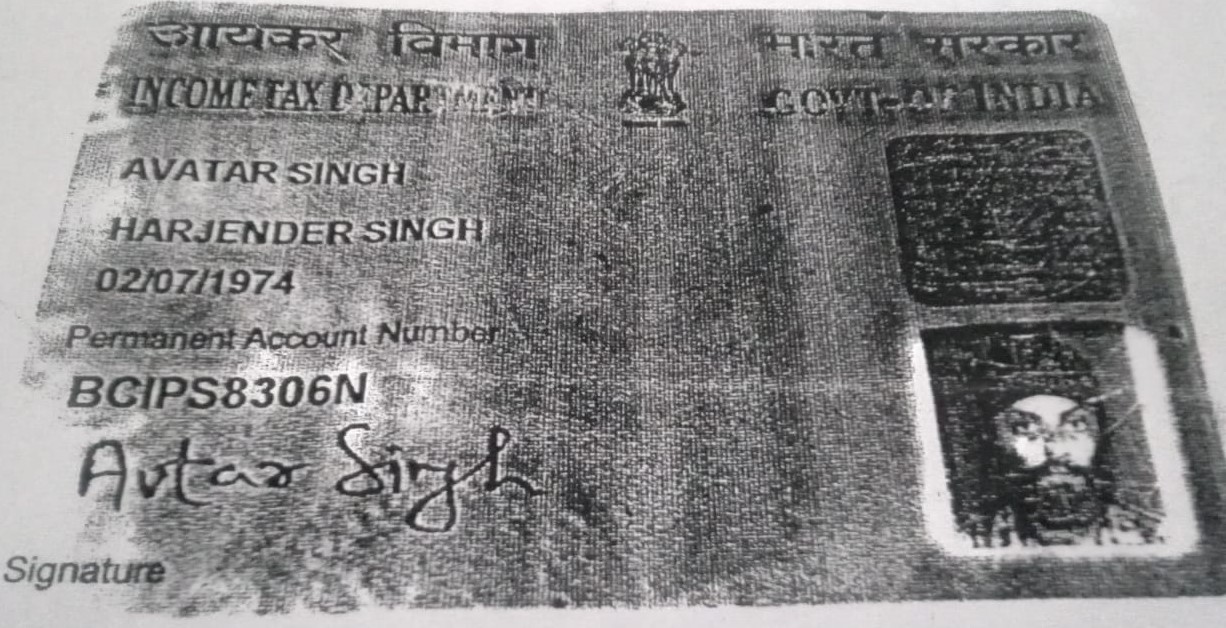 आयकर विभाग भारत सरकार
INCOME TAX DEPARTMENT GOVT. OF INDIA
AVATAR SINGH
HARJENDER SINGH
02/07/1974
Permanent Account Number
BCIPS8306N
Avtar Singh
Signature